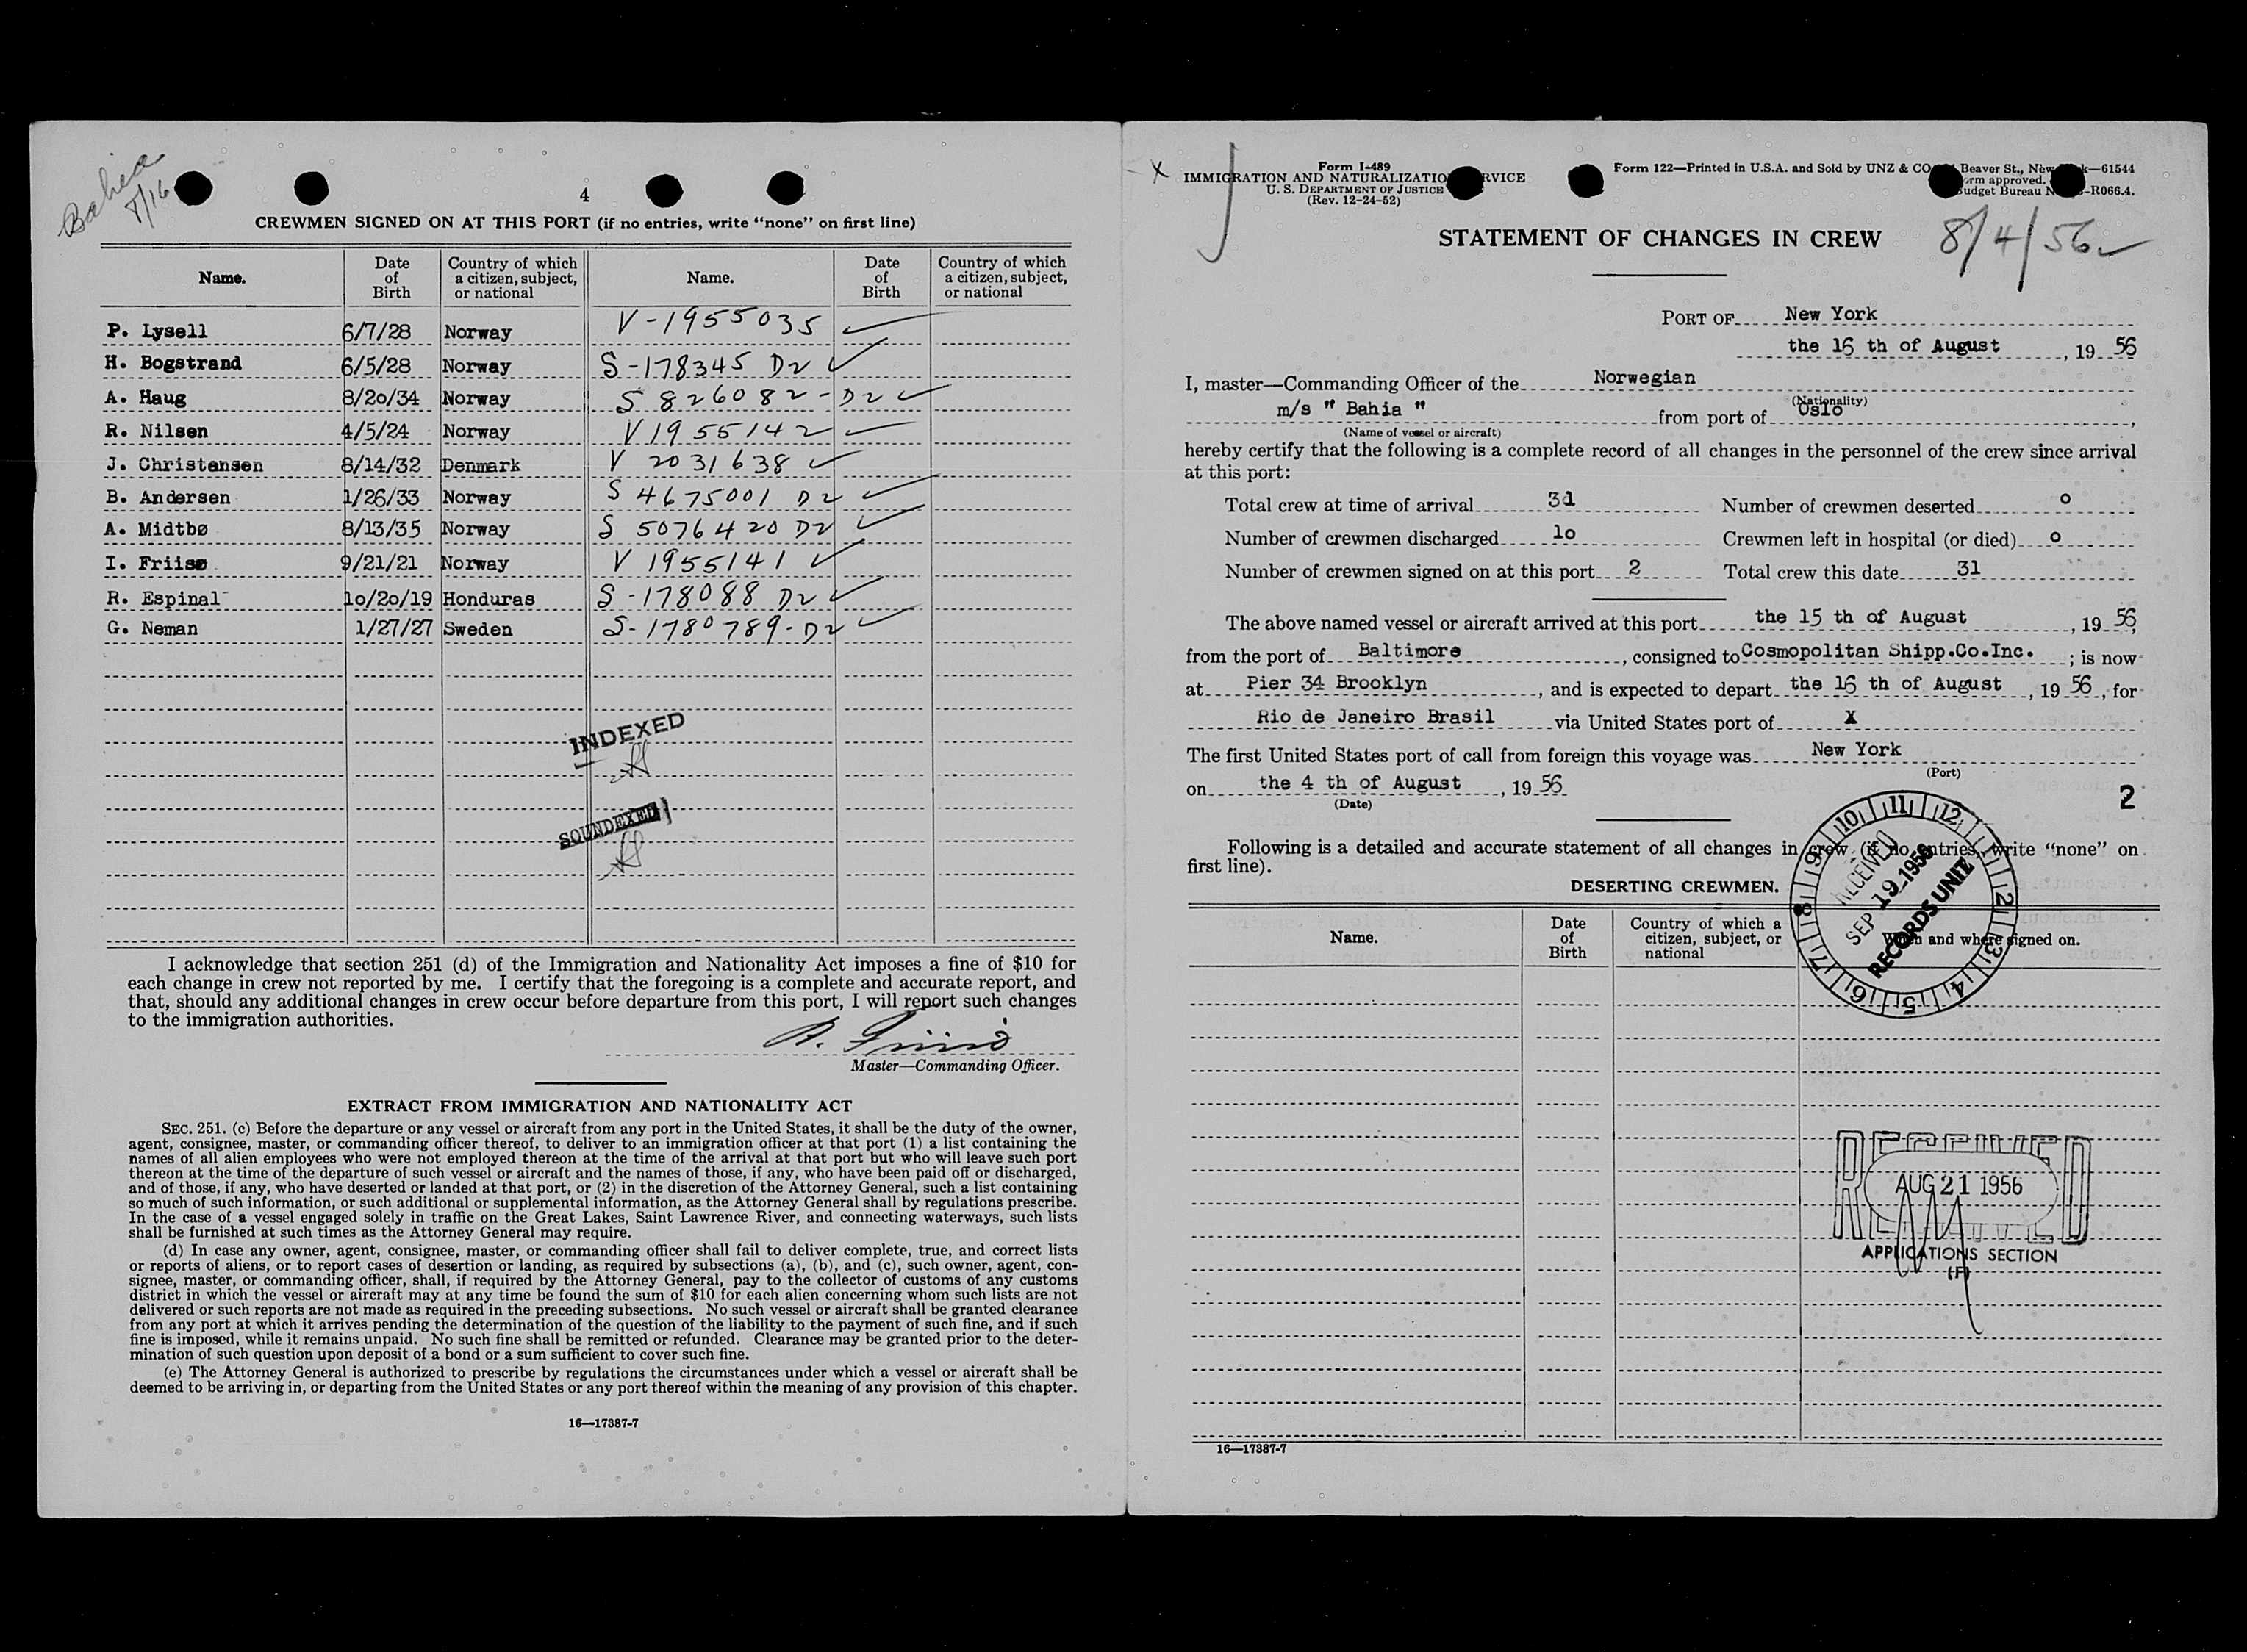 Bahia
8/16
4
CREWMEN SIGNED ON AT THIS PORT (if no entries, write “none” on first line)
Name. Date of Birth Country of which a citizen, subject, or national Name. Date of Birth Country of which a citizen, subject, or national
P. Lysell 6/7/28 Norway V-1955035
H. Bogstrand 6/5/28 Norway S-178345 D2
A. Haug 8/20/34 Norway S 826082-D2
R. Nilsen 4/5/24 Norway V1955142
J. Christensen 8/14/32 Denmark V 2031638
B. Andersen 1/26/33 Norway S 4675001 D2
A. Midtbø 8/13/35 Norway S 5076420 D2
I. Friisø 9/21/21 Norway V 1955141
R. Espinal 10/20/19 Honduras S-178088 D2
G. Neman 1/27/27 Sweden S-1780789-D2
INDEXED
SOUNDEXED
I acknowledge that section 251 (d) of the Immigration and Nationality Act imposes a fine of $10 for
each change in crew not reported by me. I certify that the foregoing is a complete and accurate report, and
that, should any additional changes in crew occur before departure from this port, I will report such changes
to the immigration authorities.
Master—Commanding Officer.
EXTRACT FROM IMMIGRATION AND NATIONALITY ACT
SEC. 251. (c) Before the departure or any vessel or aircraft from any port in the United States, it shall be the duty of the owner,
agent, consignee, master, or commanding officer thereof, to deliver to an immigration officer at that port (1) a list containing the
names of all alien employees who were not employed thereon at the time of the arrival at that port but who will leave such port
thereon at the time of the departure of such vessel or aircraft and the names of those, if any, who have been paid off or discharged,
and of those, if any, who have deserted or landed at that port, or (2) in the discretion of the Attorney General, such a list containing
so much of such information, or such additional or supplemental information, as the Attorney General shall by regulations prescribe.
In the case of a vessel engaged solely in traffic on the Great Lakes, Saint Lawrence River, and connecting waterways, such lists
shall be furnished at such times as the Attorney General may require.
(d) In case any owner, agent, consignee, master, or commanding officer shall fail to deliver complete, true, and correct lists
or reports of aliens, or to report cases of desertion or landing, as required by subsections (a), (b), and (c), such owner, agent, con-
signee, master, or commanding officer, shall, if required by the Attorney General, pay to the collector of customs of any customs
district in which the vessel or aircraft may at any time be found the sum of $10 for each alien concerning whom such lists are not
delivered or such reports are not made as required in the preceding subsections. No such vessel or aircraft shall be granted clearance
from any port at which it arrives pending the determination of the question of the liability to the payment of such fine, and if such
fine is imposed, while it remains unpaid. No such fine shall be remitted or refunded. Clearance may be granted prior to the deter-
mination of such question upon deposit of a bond or a sum sufficient to cover such fine.
(e) The Attorney General is authorized to prescribe by regulations the circumstances under which a vessel or aircraft shall be
deemed to be arriving in, or departing from the United States or any port thereof within the meaning of any provision of this chapter.
16—17387-7
X
Form I-489
IMMIGRATION AND NATURALIZATIO RVICE
U. S. DEPARTMENT OF JUSTICE
(Rev. 12-24-52)
Form 122—Printed in U.S.A. and Sold by UNZ & CO Beaver St., New k—61544
rm approved.
udget Bureau N -R066.4.
STATEMENT OF CHANGES IN CREW
8/4/56
PORT OF New York
the 16 th of August, 19 56
I, master—Commanding Officer of the Norwegian
(Nationality)
m/s " Bahia " from port of Oslo,
(Name of vessel or aircraft)
hereby certify that the following is a complete record of all changes in the personnel of the crew since arrival
at this port:
Total crew at time of arrival Number of crewmen deserted o
Number of crewmen discharged 1o Crewmen left in hospital (or died) o
Number of crewmen signed on at this port 2 Total crew this date 31
The above named vessel or aircraft arrived at this port the 15 th of August, 19 56,
from the port of Baltimore, consigned to Cosmopolitan Shipp.Co.Inc. ; is now
at Pier 34 Brooklyn, and is expected to depart the 16 th of August, 19 56, for
Rio de Janeiro Brasil via United States port of X
The first United States port of call from foreign this voyage was New York
(Port)
on the 4 th of August, 19 56
(Date)
2
Following is a detailed and accurate statement of all changes in crew (if no entries, write “none” on
first line).
DESERTING CREWMEN.
Name. Date of Birth Country of which a citizen, subject, or national When and where signed on.
10 11 12 1 2 3 4 5 6 7 8 9
RECEIVED
SEP 19 1956
RECORDS UNIT
RECEIVED
AUG 21 1956
APPLICATIONS SECTION
(F)
16—17387-7